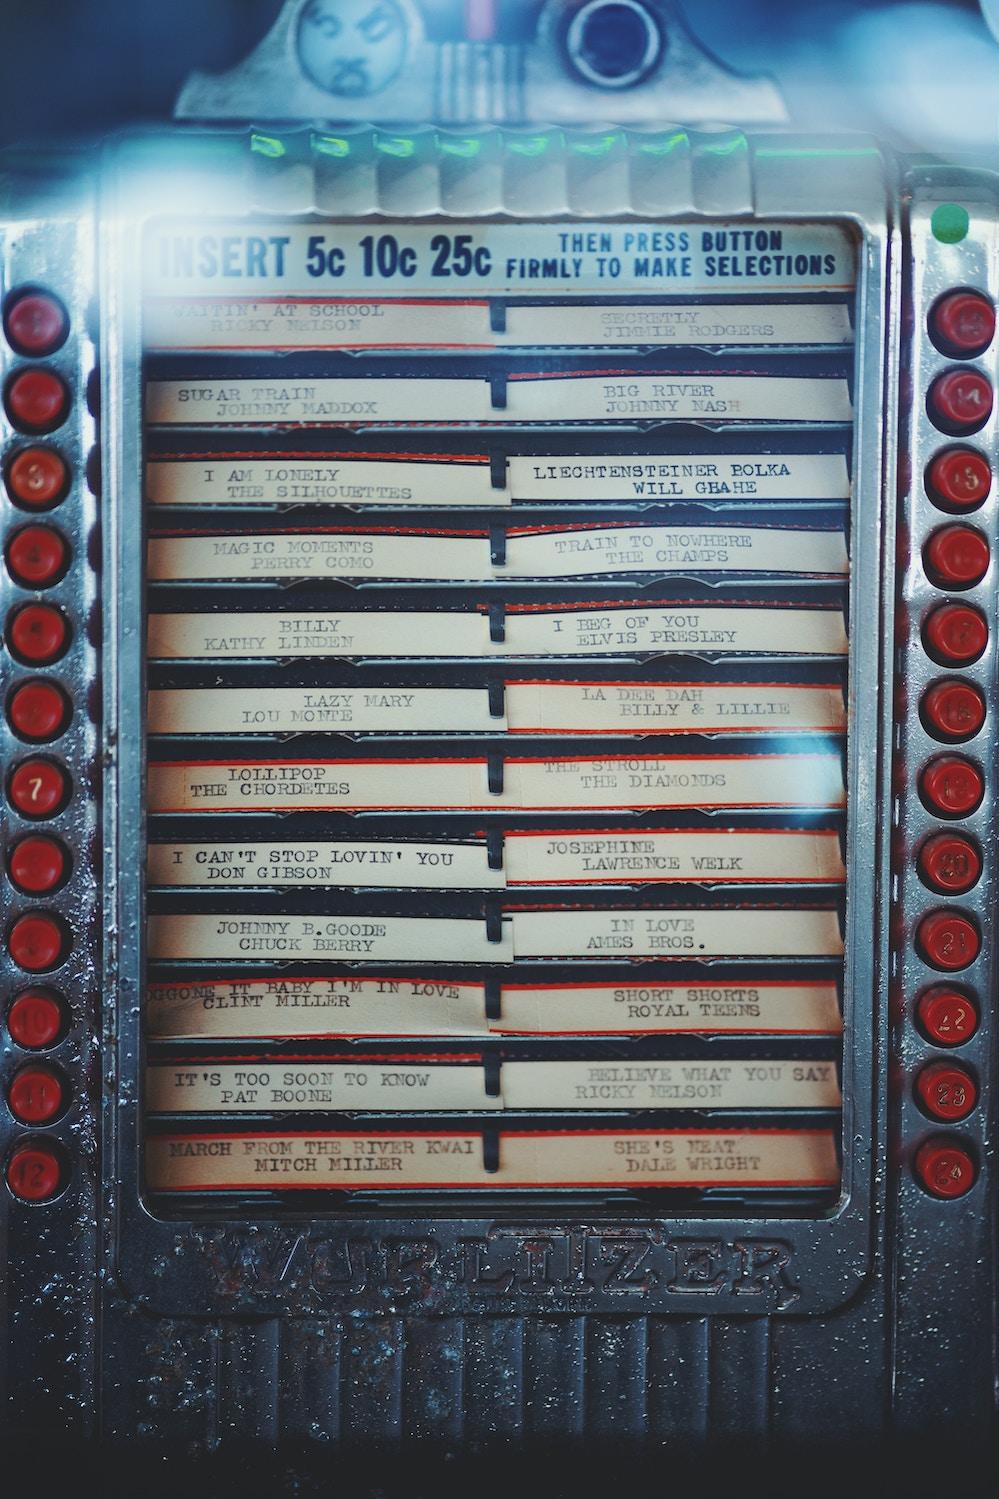 INSERT 5c 10c 25c
THEN PRESS BUTTON
FIRMLY TO MAKE SELECTIONS
WAITIN' AT SCHOOL
RICKY NELSON
SECRETLY
JIMMIE RODGERS
SUGAR TRAIN
JOHNNY MADDOX
BIG RIVER
JOHNNY NASH
I AM LONELY
THE SILHOUETTES
LIECHTENSTEINER POLKA
WILL GHAHE
MAGIC MOMENTS
PERRY COMO
TRAIN TO NOWHERE
THE CHAMPS
BILLY
KATHY LINDEN
I BEG OF YOU
ELVIS PRESLEY
LAZY MARY
LOU MONTE
LA DEE DAH
BILLY & LILLIE
LOLLIPOP
THE CHORDETES
THE STROLL
THE DIAMONDS
I CAN'T STOP LOVIN' YOU
DON GIBSON
JOSEPHINE
LAWRENCE WELK
JOHNNY B.GOODE
CHUCK BERRY
IN LOVE
AMES BROS.
OGGONE IT BABY I'M IN LOVE
CLINT MILLER
SHORT SHORTS
ROYAL TEENS
IT'S TOO SOON TO KNOW
PAT BOONE
BELIEVE WHAT YOU SAY
RICKY NELSON
MARCH FROM THE RIVER KWAI
MITCH MILLER
SHE'S NEAT
DALE WRIGHT
3
4
7
10
11
12
14
15
17
20
21
22
23
24
WURLITZER